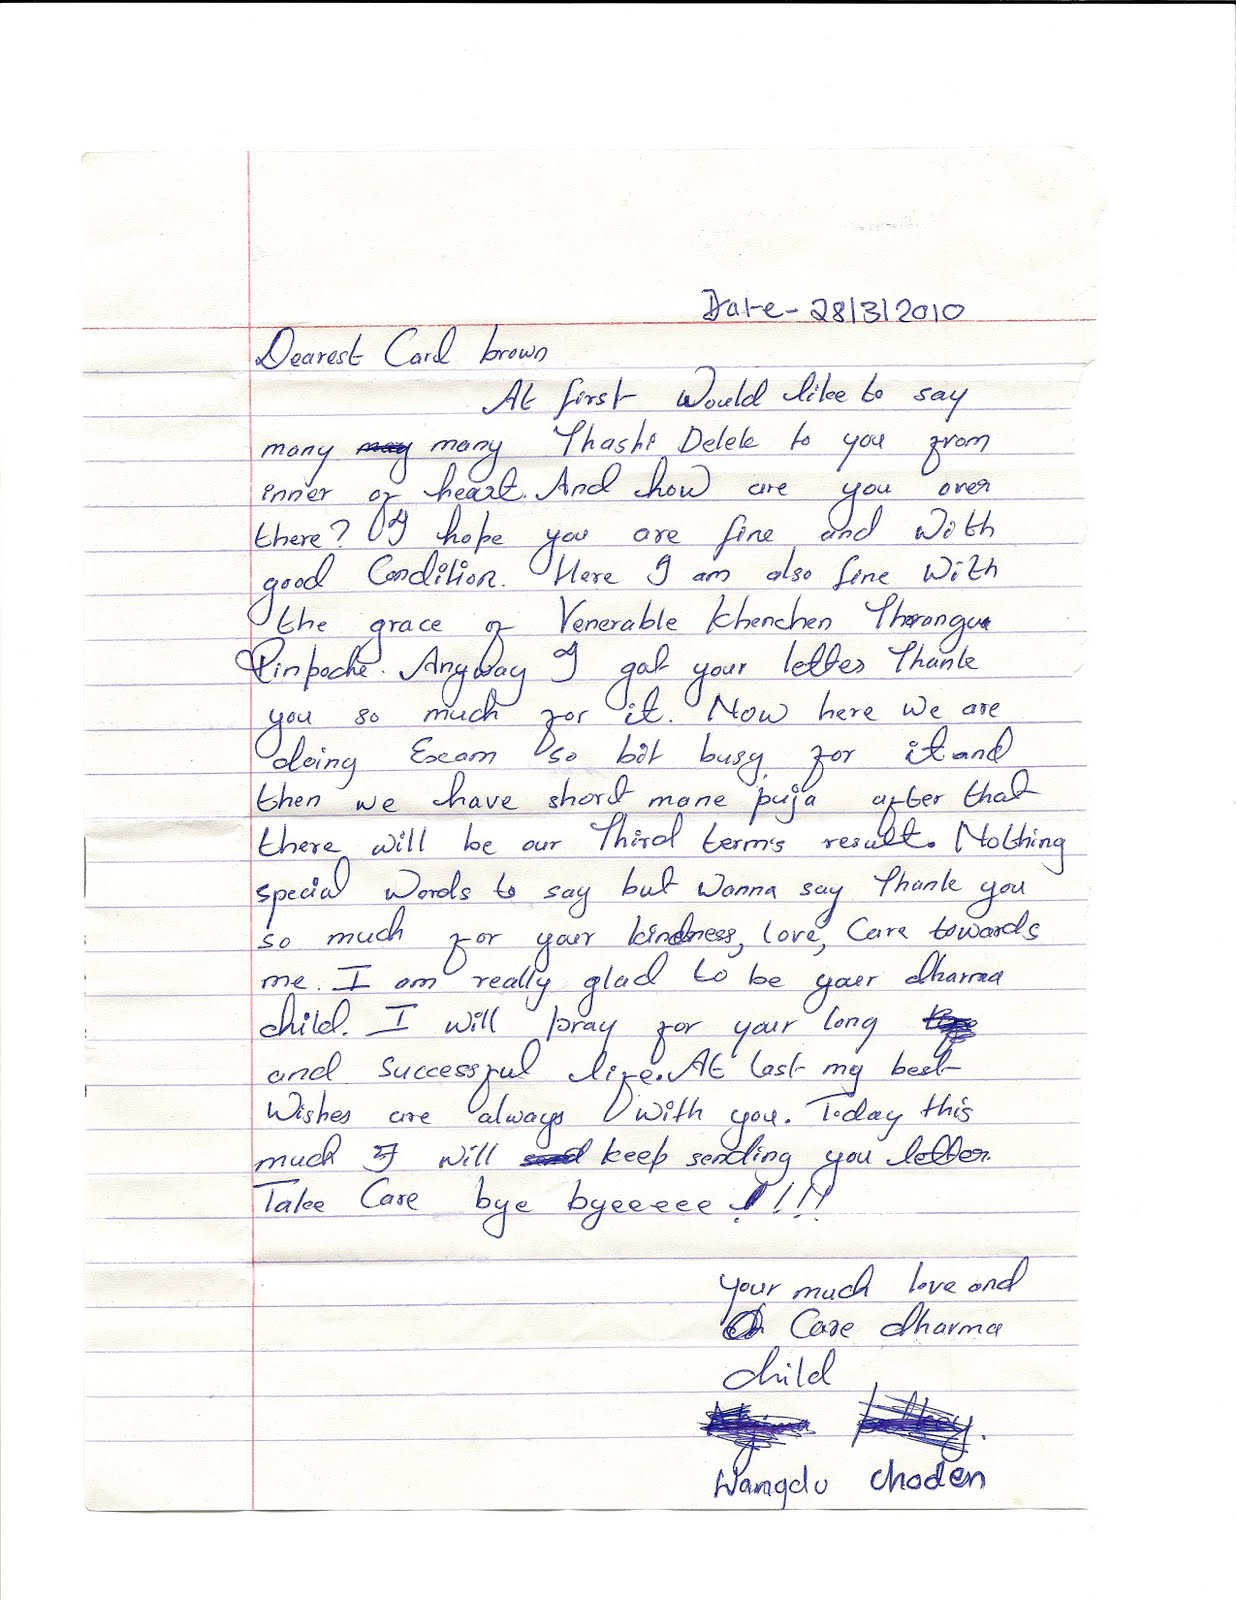 Date - 28/3/2010
Dearest Carol brown
At first Would like to say
many many Thashi Delek to you from
inner of heart. And how are you over
there? I hope you are fine and With
good Condition. Here I am also fine With
the grace of Venerable Khenchen Thrangue
Rinpoche. Anyway I gat your letter Thank
you so much for it. Now here we are
doing Exam so bit busy for it and
then we have short mane puja after that
there will be our Third term's result. Nothing
special Words to say but Wanna say Thank you
so much for your kindness, love, Care towards
me. I am really glad to be your dharma
child. I will pray for your long
and successful life. At last my best
Wishes are always With you. Today this
much I will keep sending you letter.
Take Care bye byeeeee !!!!
your much love and
Care dharma
child
Wangdu choden